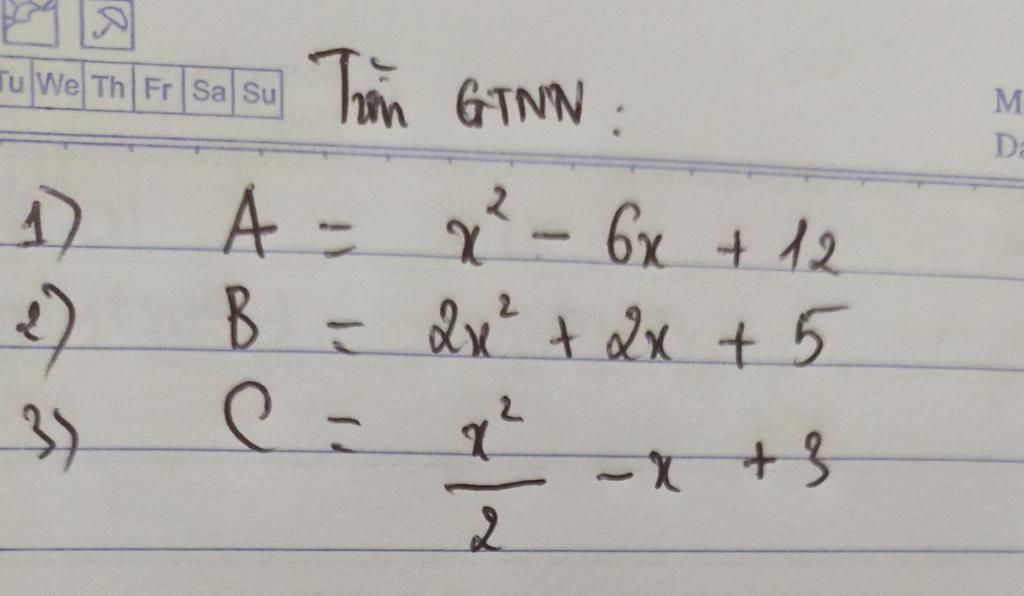 Tu We Th Fr Sa Su
Tìm GTNN :
1) A = x² - 6x + 12
2) B = 2x² + 2x + 5
3) C = x²/2 - x + 3